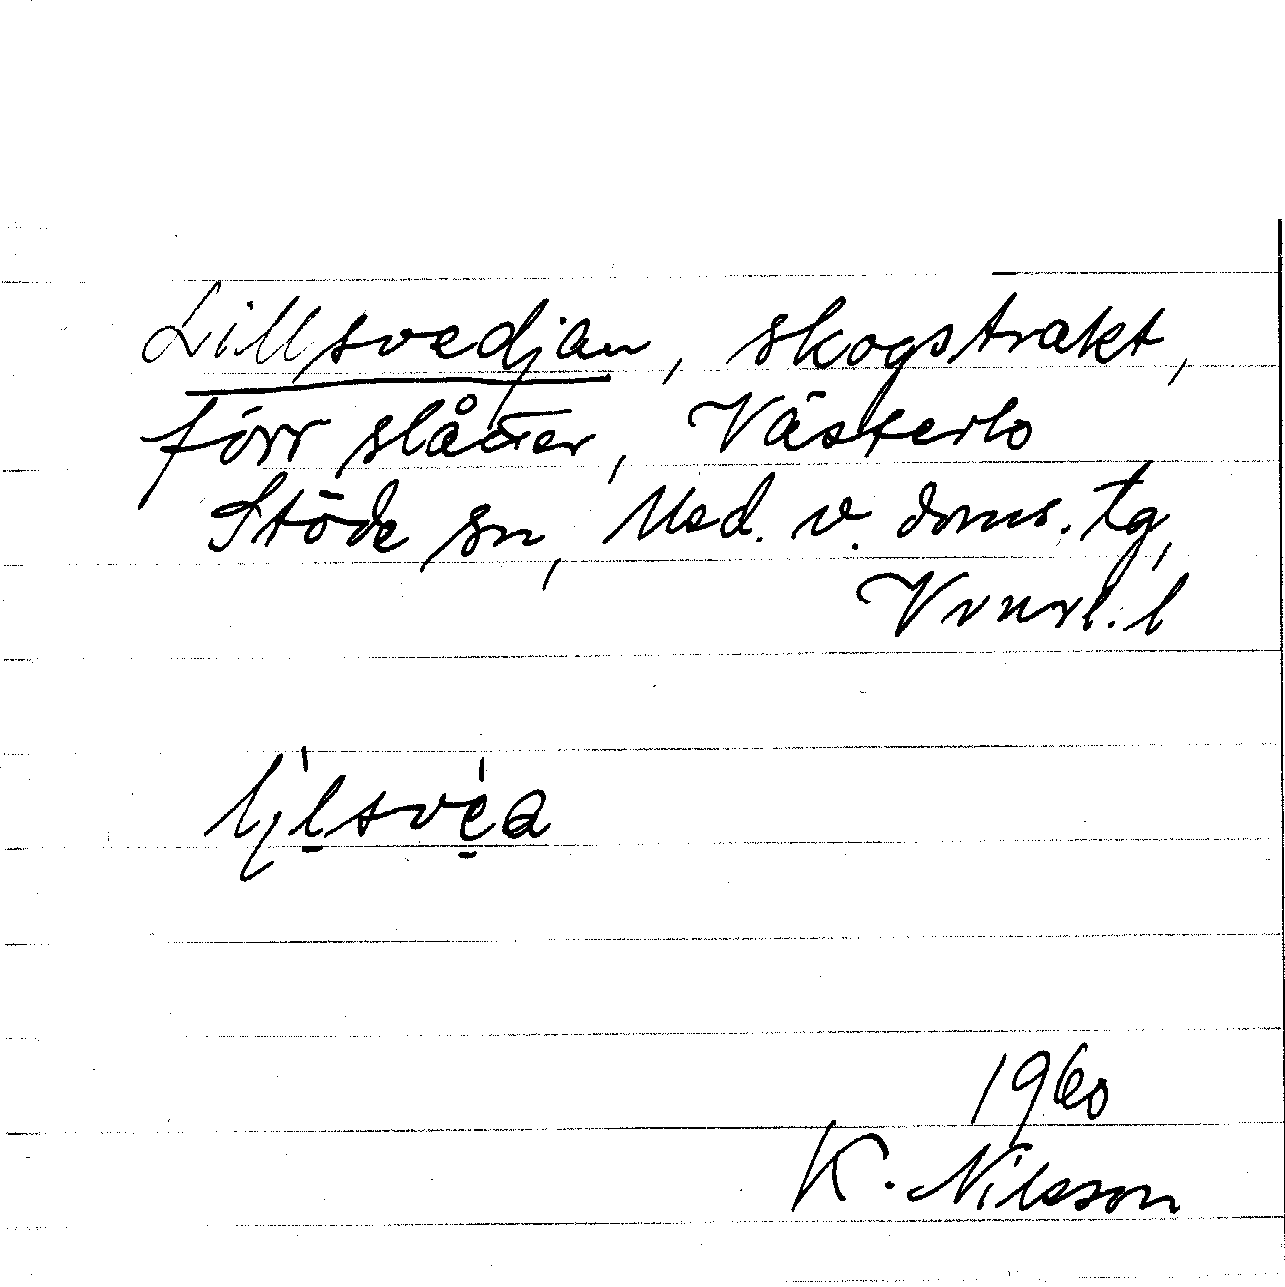 Lillsvedjan, skogstrakt,
förr slåtter, Västerlo
Stöde sn, Med. v. doms. tg,
Vvnrl. l
1960
K. Nilsson